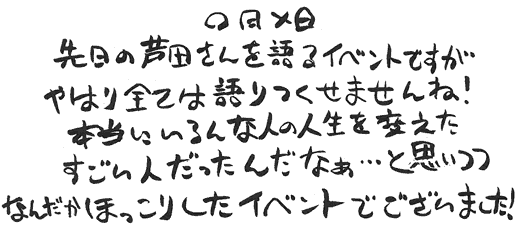 〇月×日
先日の芦田さんを語るイベントですが
やはり全ては語りつくせませんね!
本当にいろんな人の人生を変えた
すごい人だったんだなぁ…と思いつつ
なんだかほっこりしたイベントでございました!